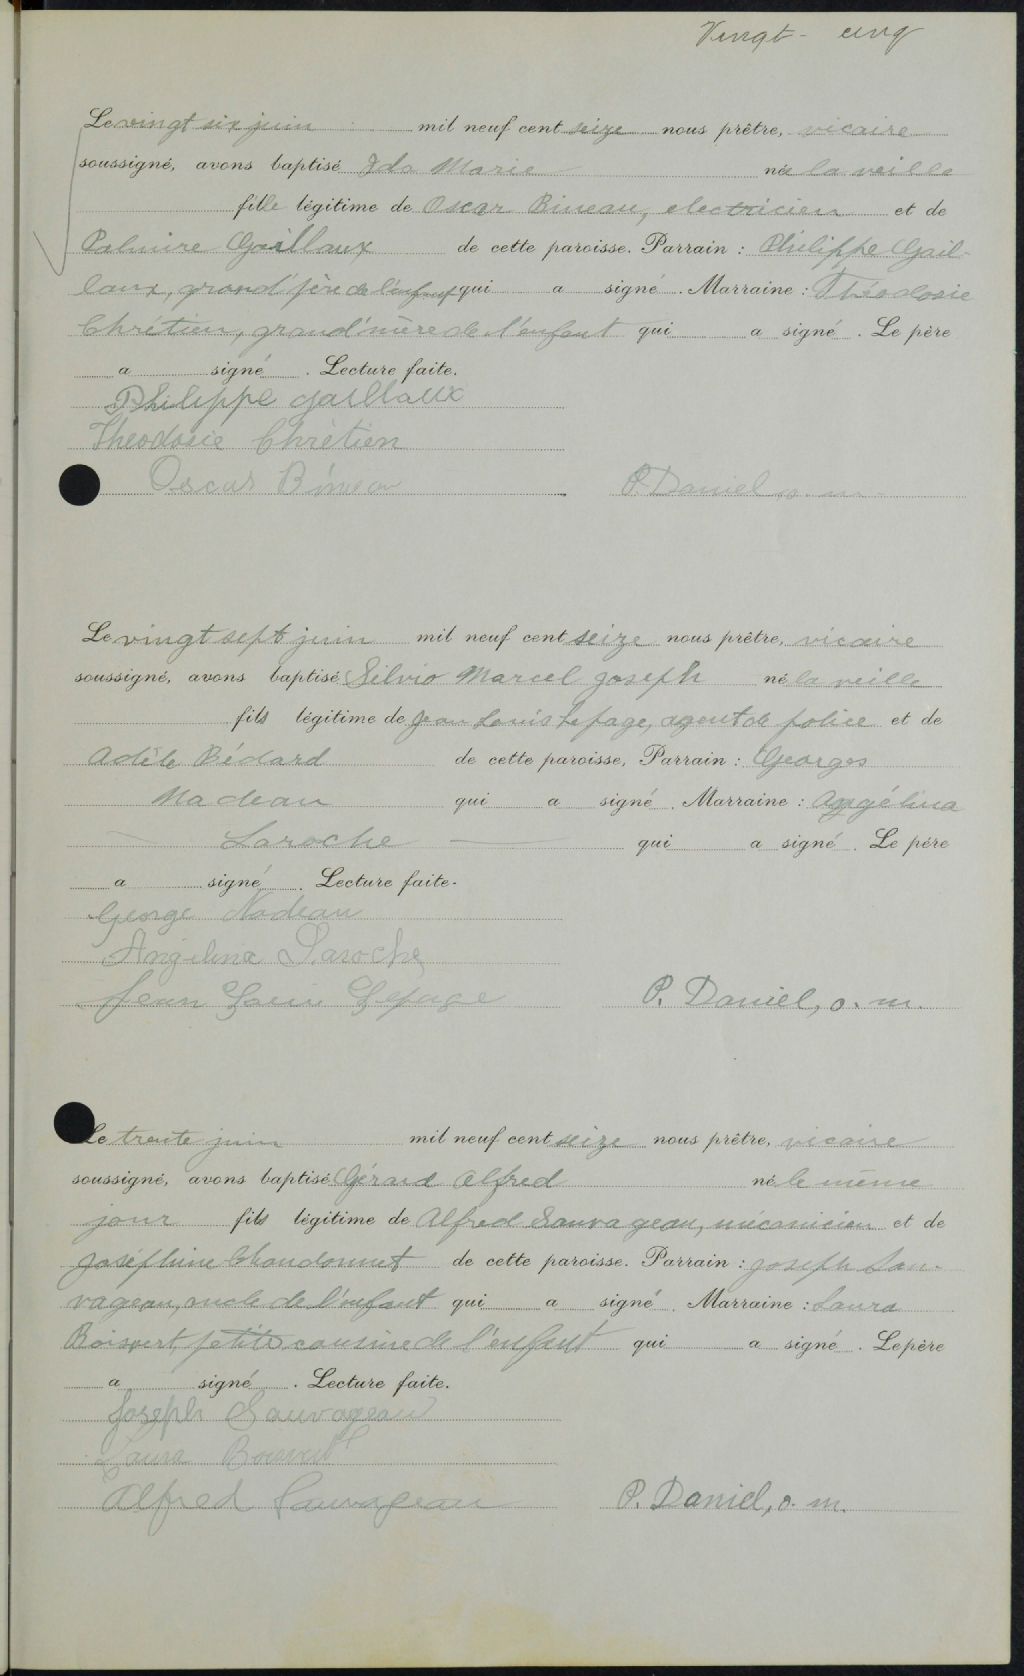 Vingt-cinq
Le vingt six juin mil neuf cent seize nous prêtre, vicaire
soussigné, avons baptisé Ida Marie née la veille
fille légitime de Oscar Bineau, electricien et de
Palmire Gaillaux de cette paroisse. Parrain : Philippe Gail-
laux, grand'père de l'enfant qui a signé. Marraine : Théodosie
Chrétien, grand'mère de l'enfant qui a signé. Le père
a signé. Lecture faite.
Philippe Gaillaux
Theodosie Chrétien
Oscar Bineau P. Daniel o. m.
Le vingt sept juin mil neuf cent seize nous prêtre, vicaire
soussigné, avons baptisé Silvio Marcel Joseph né la veille
fils légitime de Jean Louis Lepage, agent de police et de
Adèle Bédard de cette paroisse, Parrain : Georges
Nadeau qui a signé. Marraine : Angélina
Laroche qui a signé. Le père
a signé. Lecture faite.
George Nadeau
Angelina Laroche
Jean Louis Lepage P. Daniel, o. m.
Le trente juin mil neuf cent seize nous prêtre, vicaire
soussigné, avons baptisé Gérard Alfred né le même
jour fils légitime de Alfred Sauvageau, mécanicien et de
Joséphine Chandonnet de cette paroisse. Parrain : Joseph Sau-
vageau, oncle de l'enfant qui a signé. Marraine : Laura
Boisvert, petite cousine de l'enfant qui a signé. Le père
a signé. Lecture faite.
Joseph Sauvageau
Laura Boisvert
Alfred Sauvageau P. Daniel, o. m.